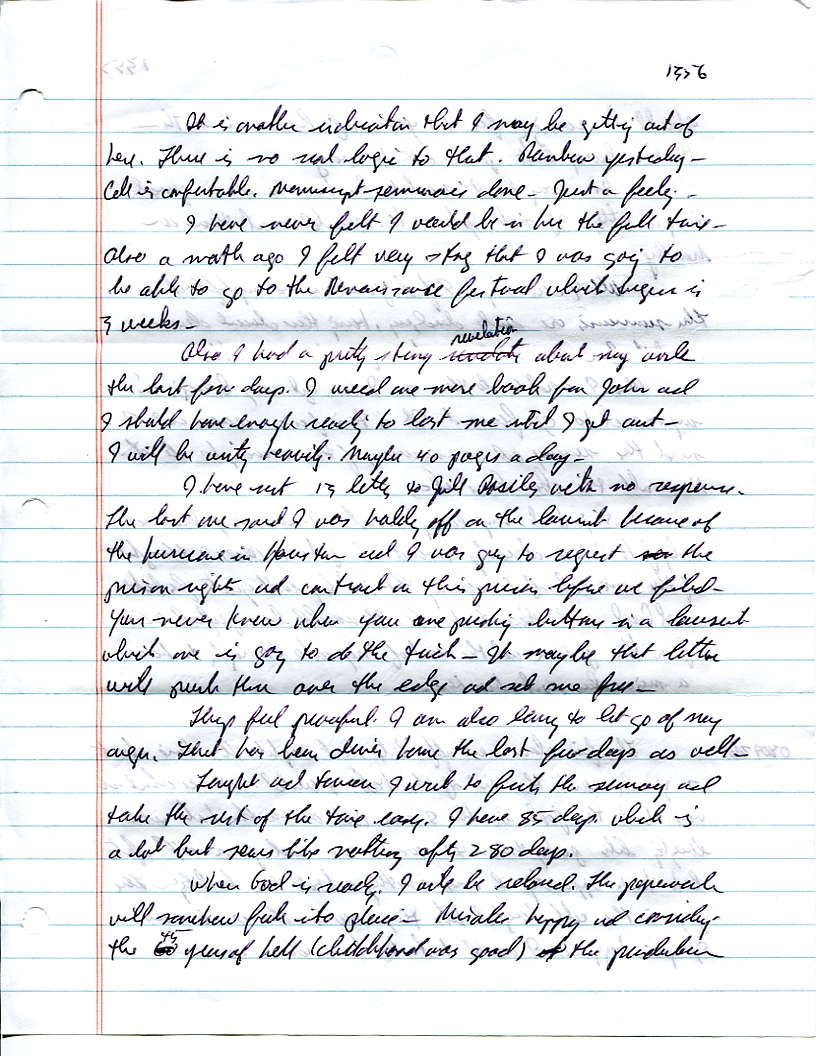 1356
It is another indication that I may be getting out of
here. There is no real logic to that. Rainbow yesterday –
Cell is comfortable. Manuscript summary is done – Just a feeling –
I have never felt I would be in here the full time –
Also a month ago I felt very strong that I was going to
be able to go to the Renaissance festival which begins in
3 weeks –
revelation
Also I had a pretty strong about my work
the last few days. I need one more book from John and
I should have enough ready to last me until I get out –
I will be writing heavily. Maybe 40 pages a day –
I have sent 13 letters to Jill with no response.
The last one said I was holding off on the lawsuit because of
the hurricane in Houston and I was going to request the
prison rights and contract on this prison before we filed –
You never know when you are pushing buttons in a lawsuit
which one is going to do the trick – It maybe that letter
will push them over the edge and set me free –
Things feel peaceful. I am also learning to let go of my
anger. That has been driven home the last few days as well –
Tonight and tomorrow I want to finish the summary and
take the rest of the time easy. I have 85 days which is
a lot but seems like nothing after 280 days.
When God is ready, I will be released. The paperwork
will somehow fall into place – Miracles happen and considering
the 45 years of hell (childhood was good) the